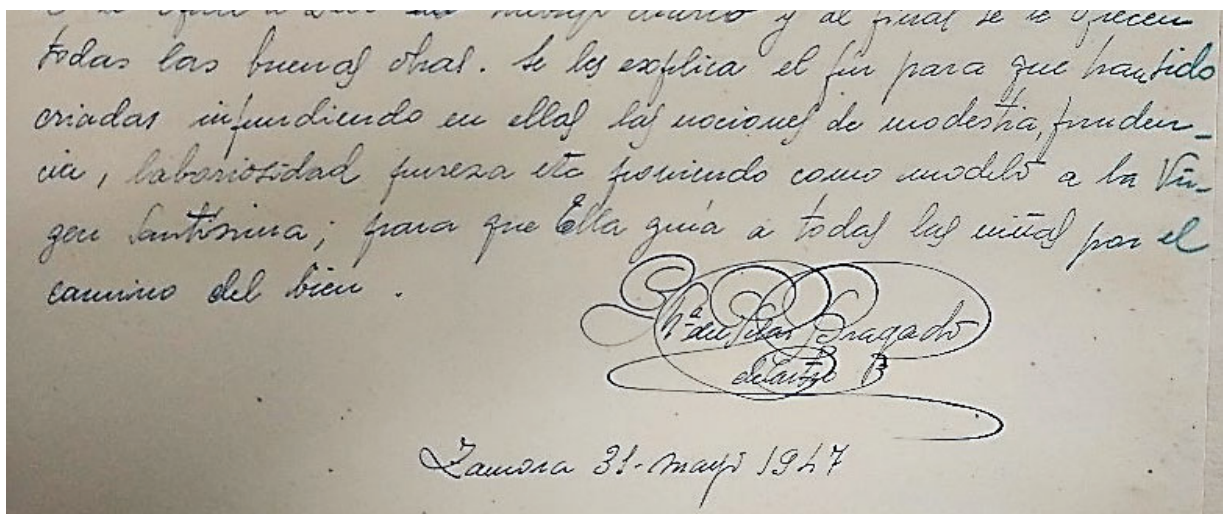 se le ofrece a Dios el trabajo diario y al final se le ofrecen
todas las buenas obras. Se les explica el fin para que han sido
criadas infundiendo en ellas las nociones de modestia, pruden-
cia, laboriosidad pureza etc poniendo como modelo a la Vir-
gen Santísima; para que Ella guía a todas las niñas por el
camino del bien.
Mª del Pilar Bragado
Zamora 31-mayo 1947